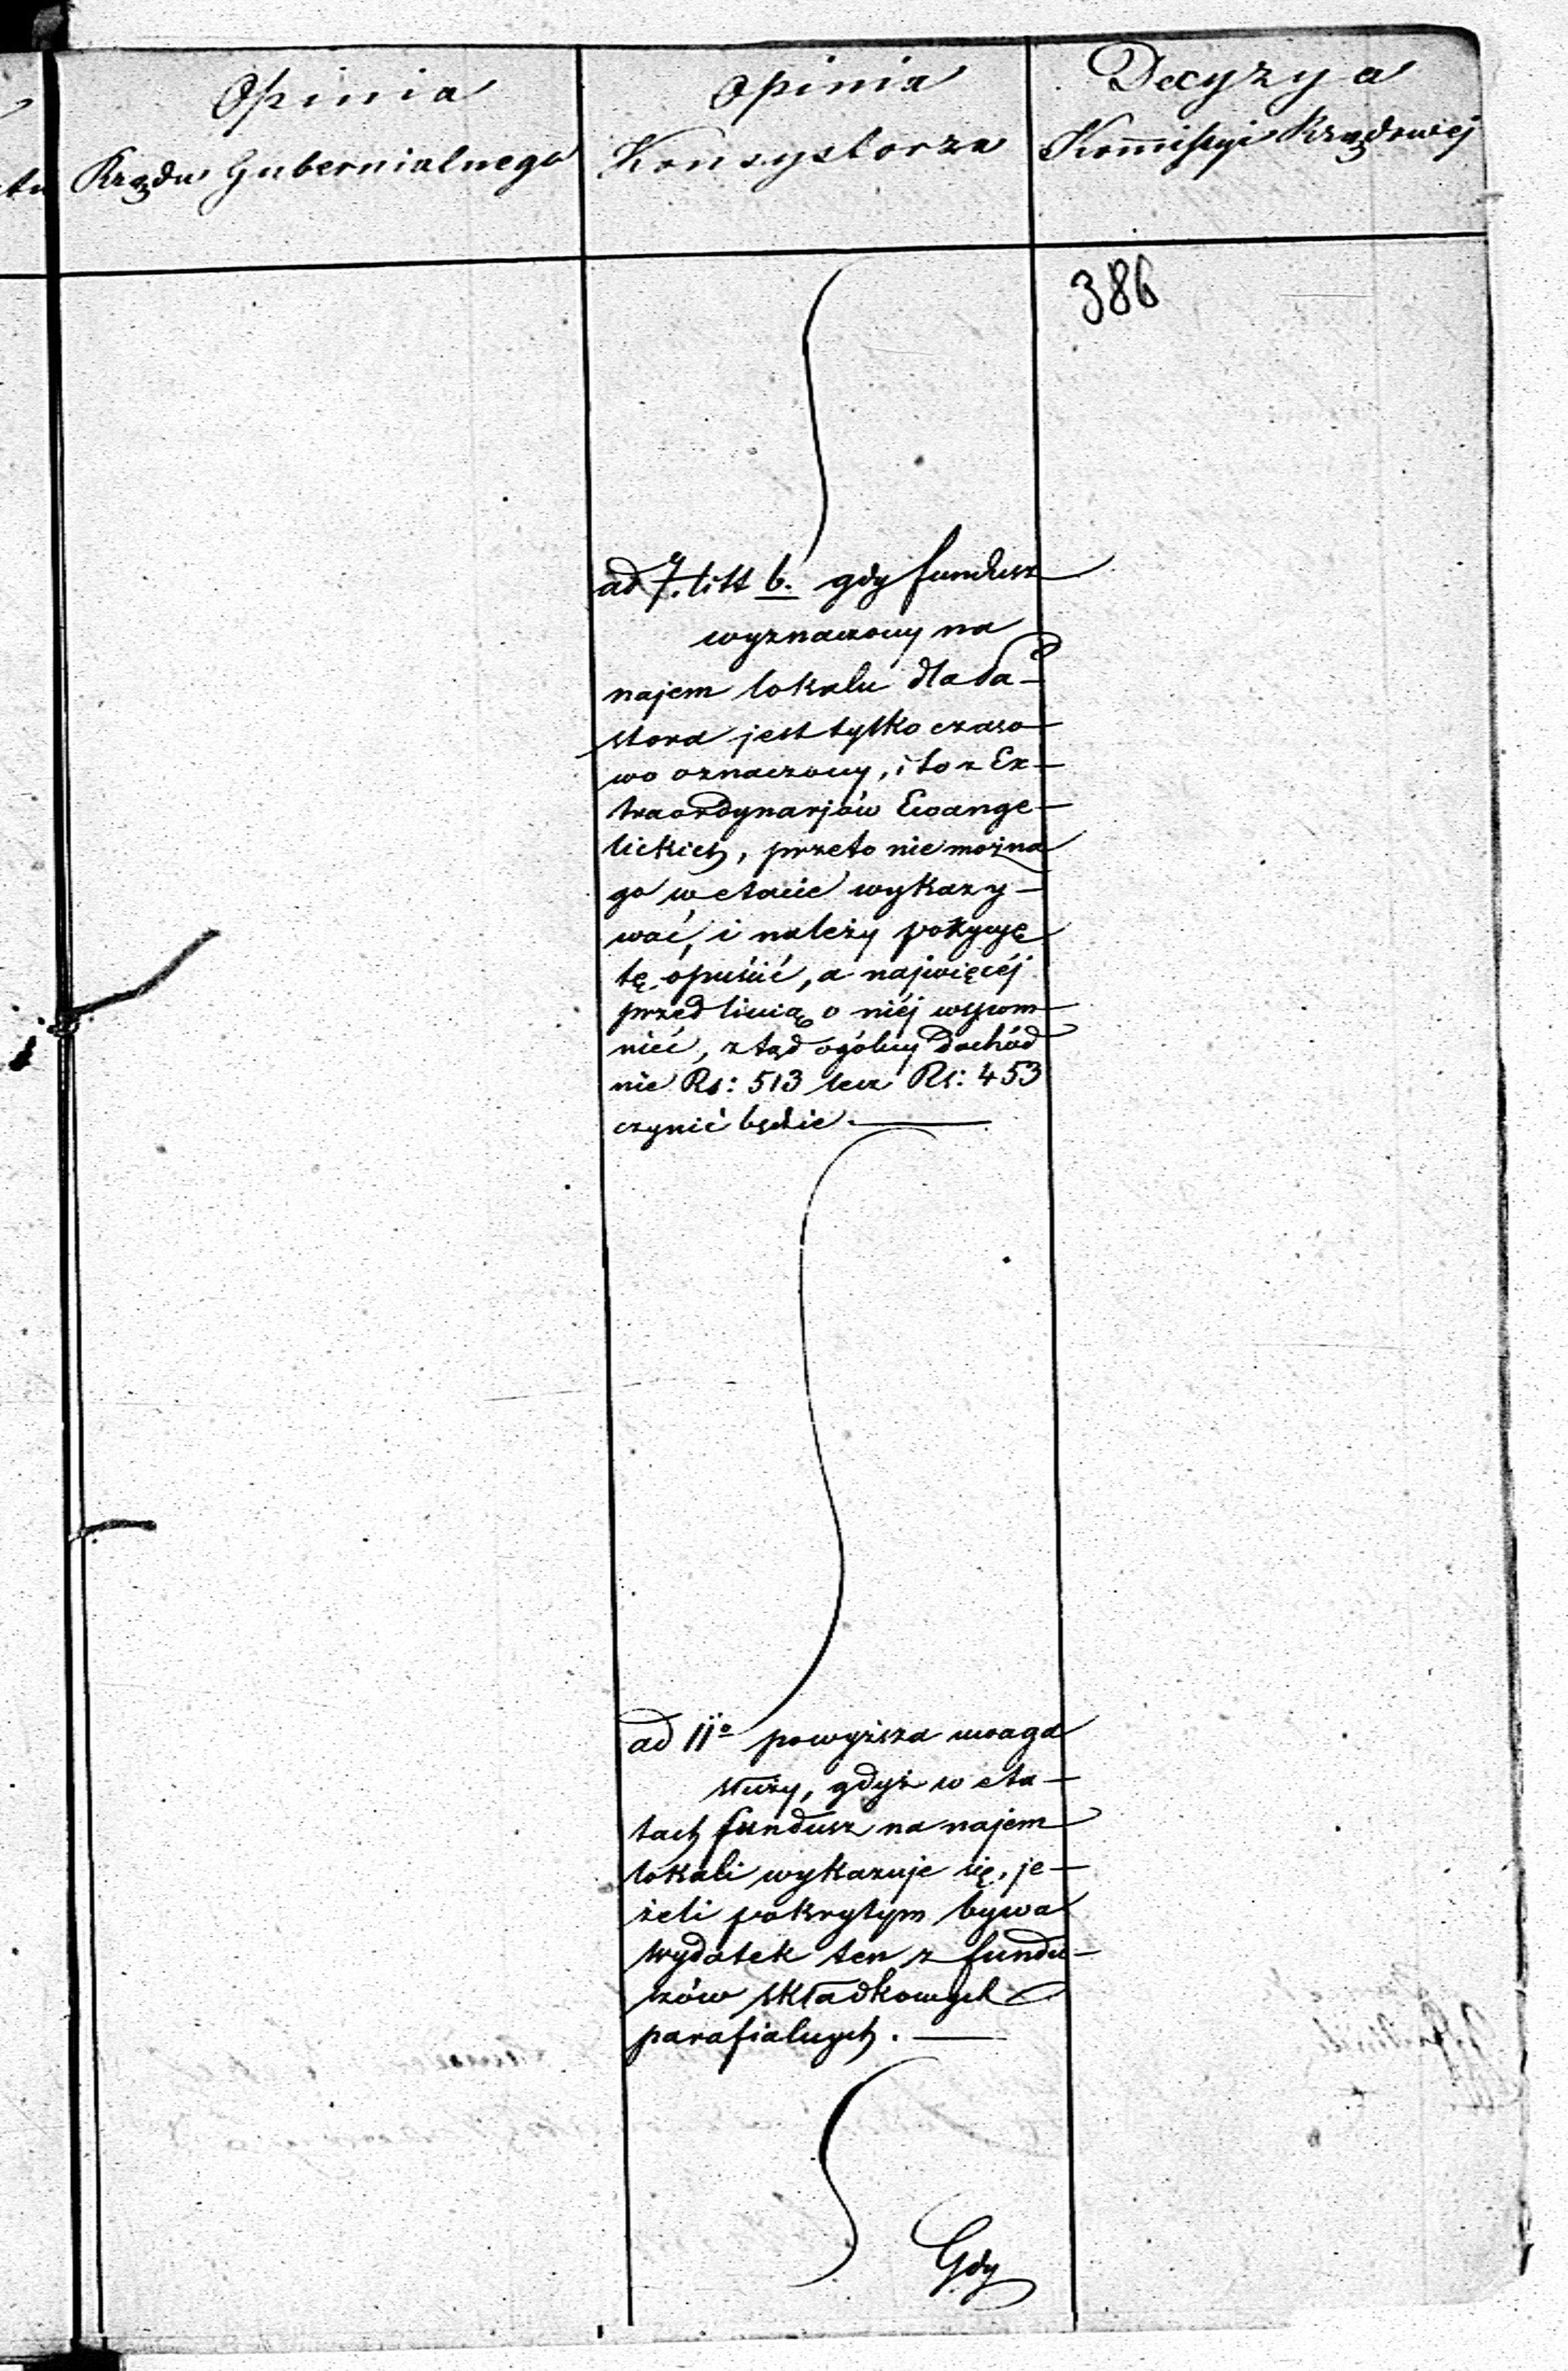 Opinia
Rządu Gubernialnego
Opinia
Konsystorza
Decyzya
Kommissyi Rządowej
386
ad 7. litt b. gdy fundusz
wyznaczony na
najem lokalu dla Pa-
stora jest tylko czaso-
wo oznaczony, i to z Ex-
traordynarjów Ewange-
lickich, przeto nie można
go w etacie wykazy-
wać, i należy pozycyę
tę opuścić, a najwięcéj
przed linią o niéj wspom-
nieć, ztąd ogólny dochód
nie Rs: 513 lecz Rs: 453
czynić będzie.
ad IIo powyższa uwaga
służy, gdyż w eta-
tach fundusz na najem
lokali wykazuje się, je-
żeli pokrytym bywa
wydatek ten z fundu-
szów składkowych
parafialnych.
Gdy